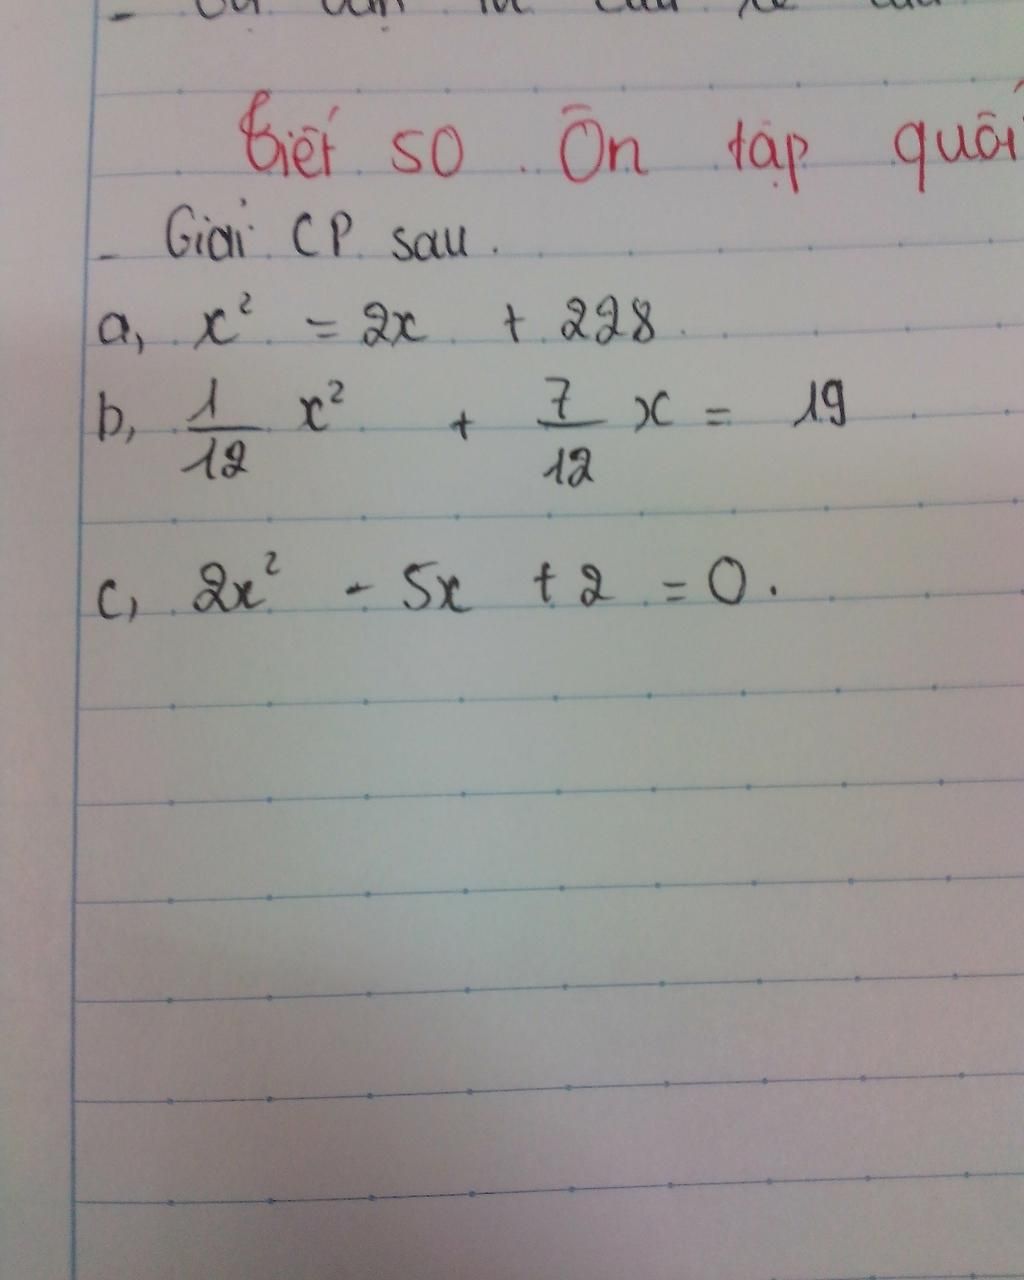 Tiết 50 Ôn tập
- Giải CP sau.
a, x² = 2x + 228
b, 1/12 x² + 7/12 x = 19
c, 2x² - 5x + 2 = 0.